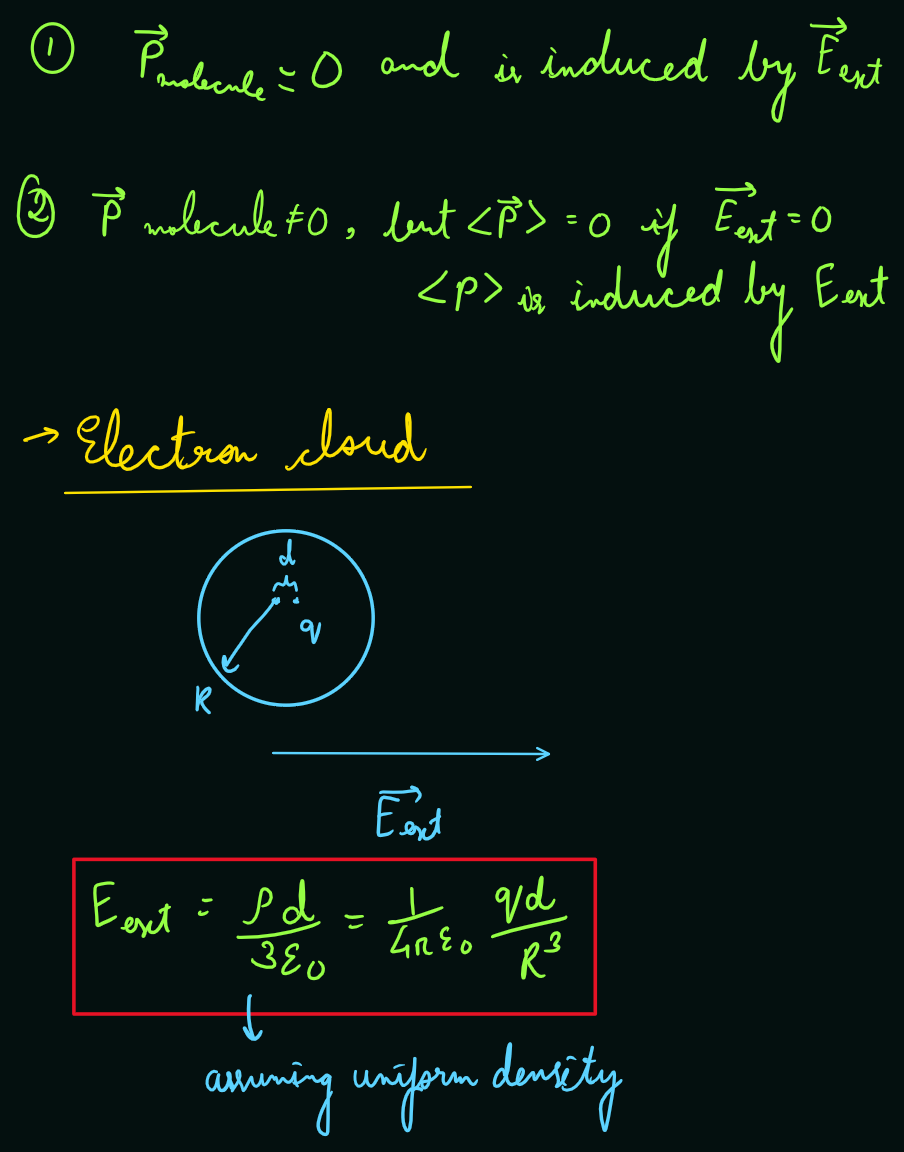 ① P⃗molecule = 0 and is induced by E⃗ext
② P⃗ molecule ≠ 0, but <P⃗> = 0 if E⃗ext = 0
<P> is induced by Eext
→ Electron cloud
d
q
R
E⃗ext
Eext = ρd/3ε0 = 1/4πε0 qd/R³
assuming uniform density